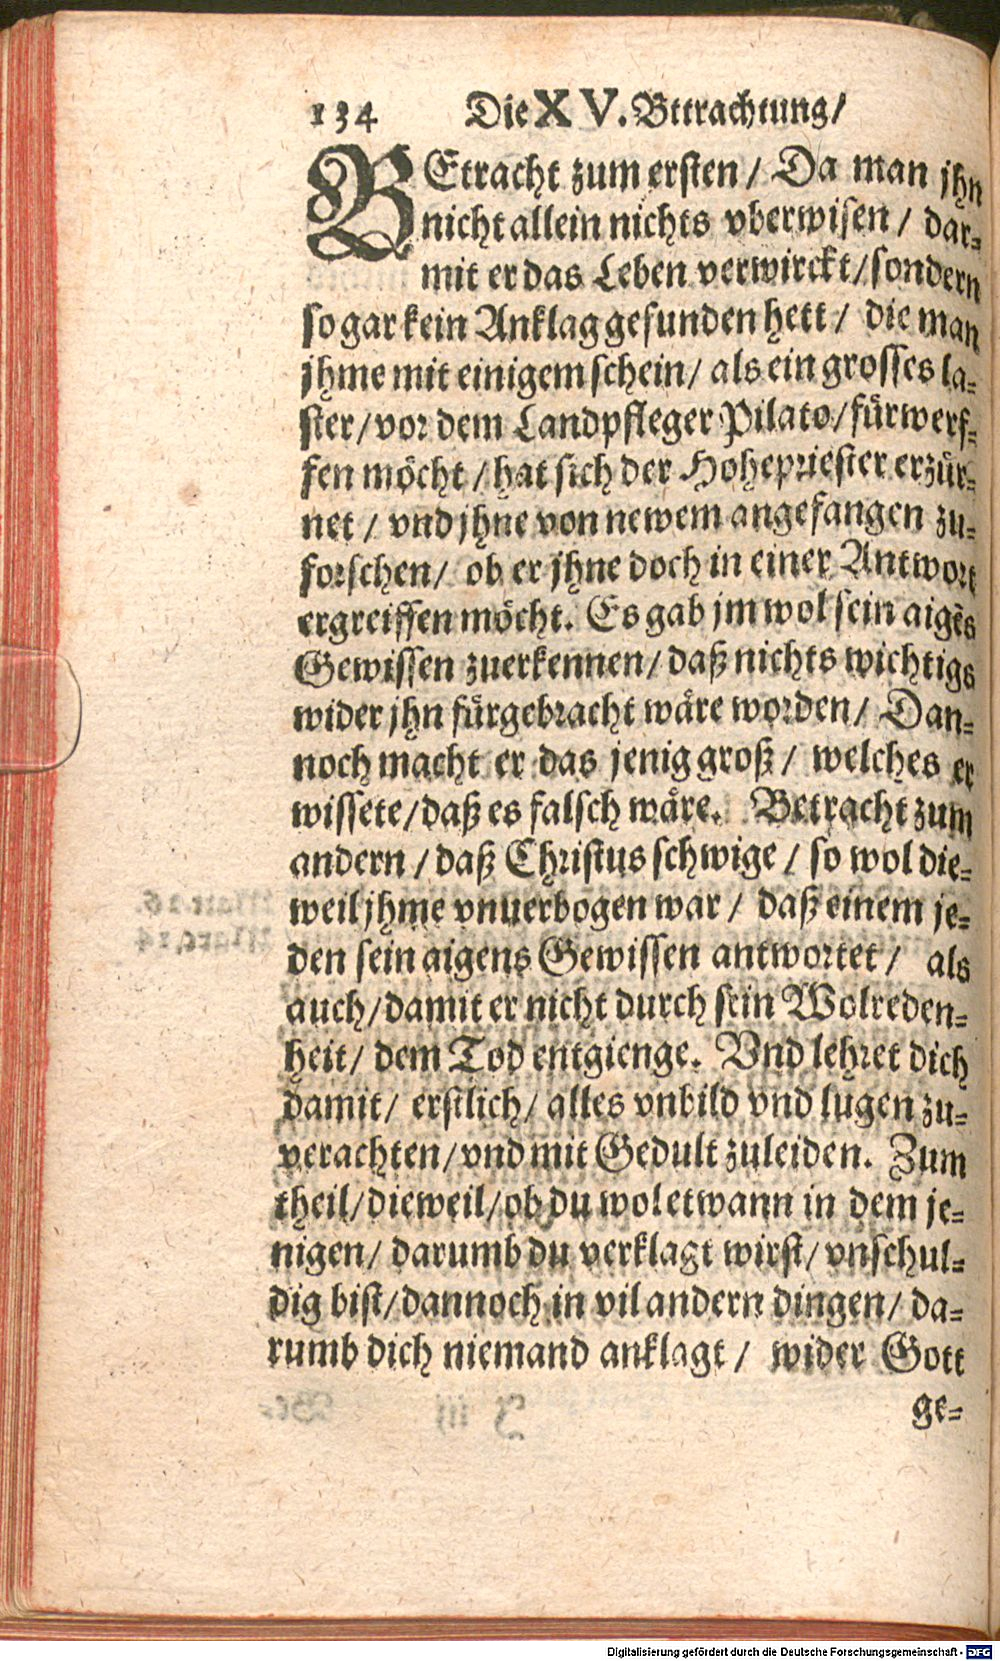 134 Die XV. Bttrachtung/
BEtracht zum ersten / Da man jhn
nicht allein nichts vberwisen / dar-
mit er das Leben verwirckt/sondern
so gar kein Anklag gefunden hett / die man
jhme mit einigem schein/ als ein grosses la-
ster/vor dem Landpfleger Pilato/fürwerf-
fen möcht /hat sich der Hohepriester erzür-
net / vnd jhne von newem angefangen zu-
forschen/ ob er jhne doch in einer Antwort
ergreiffen möcht. Es gab jm wol sein aigẽs
Gewissen zuerkennen/daß nichts wichtigs
wider jhn fürgebracht wäre worden/ Dan-
noch macht er das jenig groß / welches er
wissete/daß es falsch wäre. Betracht zum
andern /daß Christus schwige / so wol die-
weil jhme vnuerbogen war / daß einem je-
den sein aigens Gewissen antwortet / als
auch/damit er nicht durch sein Wolreden-
heit/ dem Tod entgienge. Vnd lehret dich
damit/ erstlich/ alles vnbild vnd lugen zu-
verachten/vnd mit Gedult zuleiden. Zum
theil/dieweil/ob du wol etwann in dem je-
nigen/ darumb du verklagt wirst/ vnschul-
dig bist/dannoch in vil andern dingen/ da-
rumb dich niemand anklagt / wider Gott
ge-
Digitalisierung gefördert durch die Deutsche Forschungsgemeinschaft - DFG